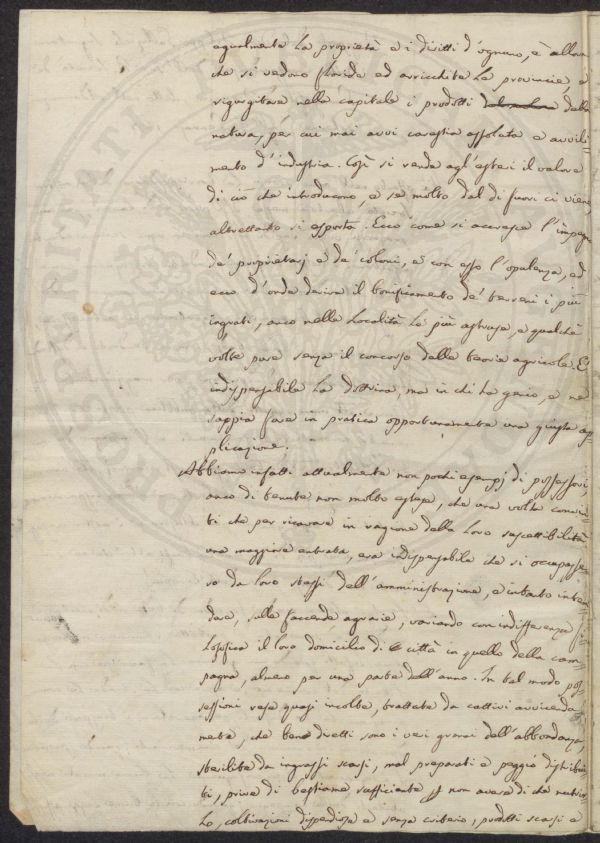 egualmente la proprietà e i diritti d'ognuno, è allora
che si vedono floride ed arricchite le provincie, e
rigurgitare nella capitale i prodotti della
natura, per cui mai avvi carestia assoluta e avvili-
mento d'industria. Così si rende agl'esteri il valore
di ciò che introducono, e se molto dal di fuori ci viene
altrettanto si esporta. Ecco come si accresce l'impegno
de' proprietarj e de' coloni, e con esso l'opulenza, ed
ecco d'onde deriva il bonificamento de' terreni i più
ingrati, anco nelle località le più astruse, e qualche
volta pure senza il concorso delle teorie agricole. È
indispensabile la dottrina, ma in chi ha genio, e ne
sappia fare in pratica opportunamente una giusta ap-
plicazione.
Abbiamo infatti attualmente non pochi esempj di possessori,
anco di tenute non molto estese, che una volta convin-
ti che per ricavare in ragione della loro suscettibilità
una maggiore entrata, era indispensabile che si occupasse-
ro da loro stessi dell'amministrazione, e intanto inten-
dere, sulle faccende agrarie, variando con indifferenza fi-
losofica il loro domicilio di città in quello della cam-
pagna, almeno per una parte dell'anno. In tal modo pos-
sessioni rese quasi incolte, trattate da cattivi avvicenda-
menti, che bene diretti sono i veri granai dell'abbondanza,
sterilite da ingrassi scarsi, mal preparati e peggio distribui-
ti, prive di bestiame sufficiente p non avere di che nutrir-
lo, coltivazioni dispendiose e senza criterio, prodotti scarsi e
PROSPERITATI